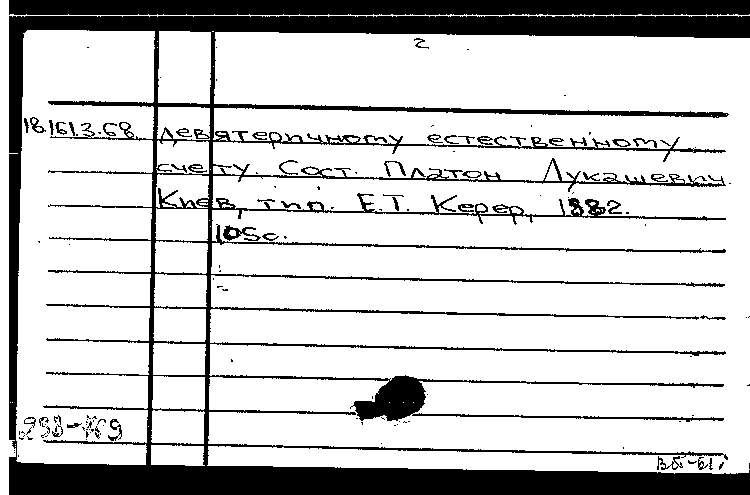 2
18.161.3.68. девятеричному естественному
счету. Сост. Платон Лукашевич.
Киев, тип. Е.Т. Керер, 1882.
105с.